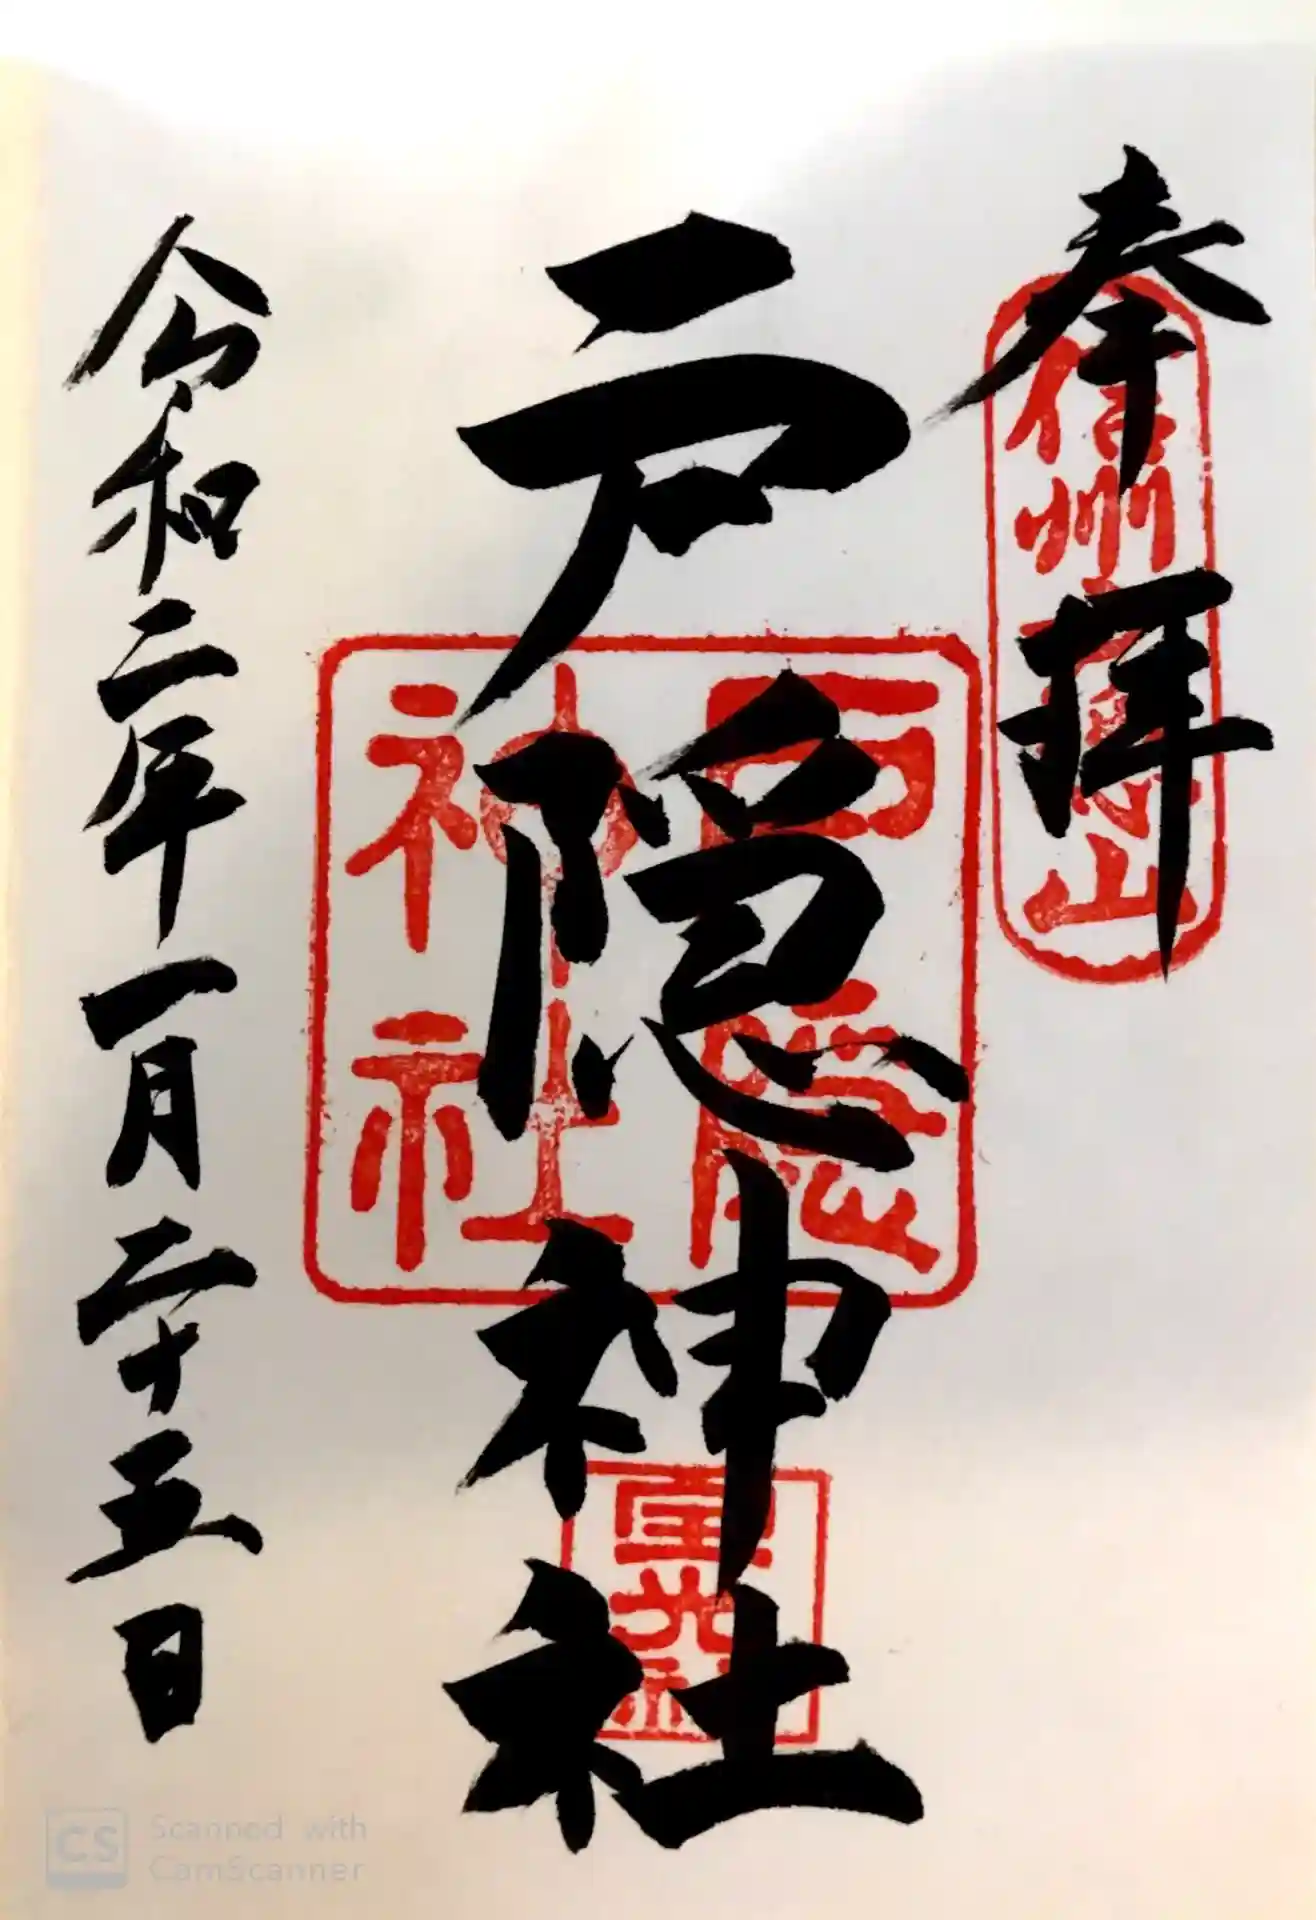 奉拝
信州戸隠山
戸隠神社
戸隠
神社
宝光社
令和二年一月二十五日
CS
Scanned with
CamScanner